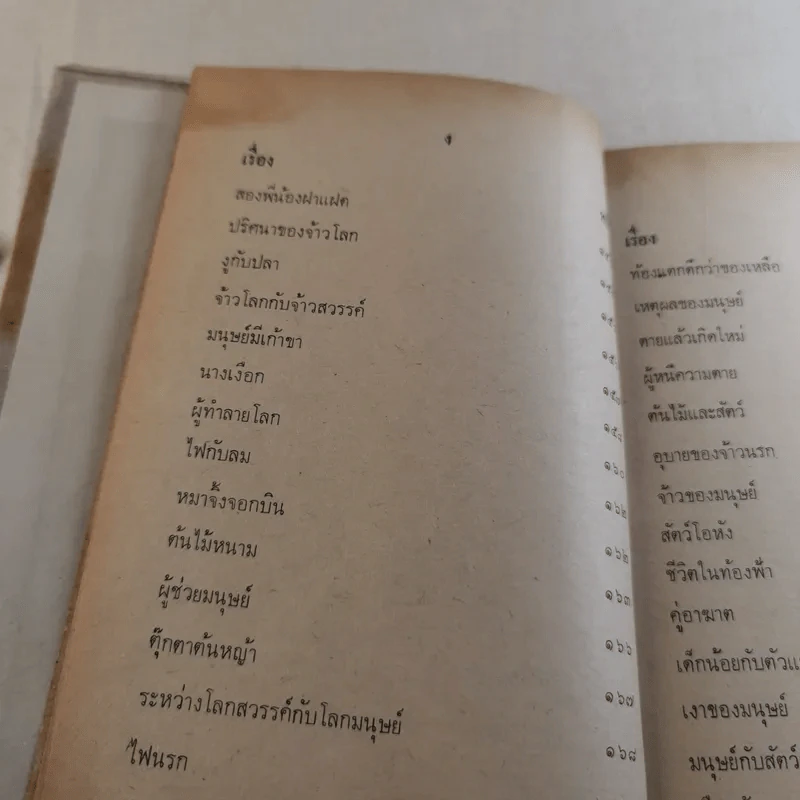 เรื่อง
สองพี่น้องฝาแฝด
ปริศนาของจ้าวโลก
งูกับปลา
จ้าวโลกกับจ้าวสวรรค์
มนุษย์มีเก้าขา
นางเงือก
ผู้ทำลายโลก
ไฟกับลม
หมาจิ้งจอกบิน
ต้นไม้หนาม
ผู้ช่วยมนุษย์
ตุ๊กตาต้นหญ้า
ระหว่างโลกสวรรค์กับโลกมนุษย์
ไฟนรก
๑๕๘
๑๖๐
๑๖๒
๑๖๒
๑๖๓
๑๖๖
๑๖๗
๑๖๘
เรื่อง
ท้องแตกดีกว่าของเหลือ
เหตุผลของมนุษย์
ตายแล้วเกิดใหม่
ผู้หนีความตาย
ต้นไม้และสัตว์
อุบายของจ้าวนรก
จ้าวของมนุษย์
สัตว์โอหัง
ชีวิตในท้องฟ้า
คู่อาฆาต
เด็กน้อยกับตัวแ
เงาของมนุษย์
มนุษย์กับสัตว์